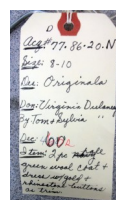 D
Acq# 77-86-20.N
Size: 8-10
Des: Originala
Don: Virginia Dulaney
By Tom & Sylvia
Dec: 60s
Item: 2 pc
green wool coat &
green
rhinestone buttons
as trim